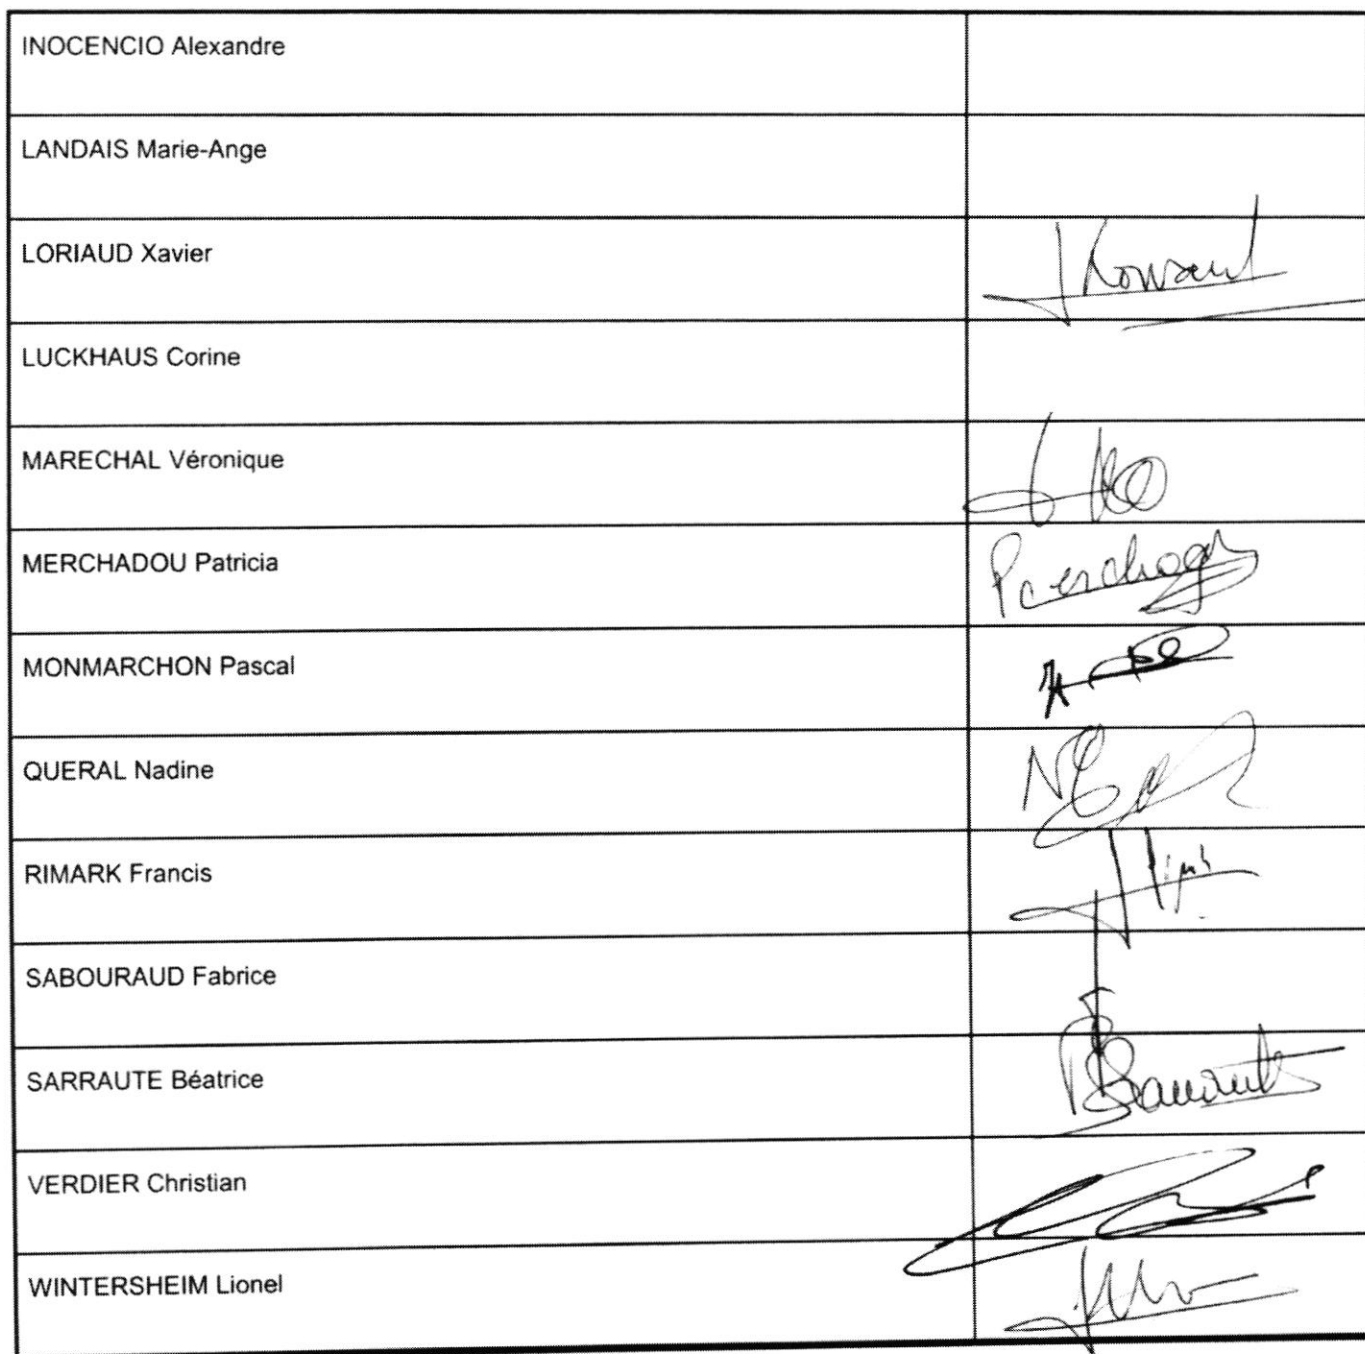 INOCENCIO Alexandre
LANDAIS Marie-Ange
LORIAUD Xavier
LUCKHAUS Corine
MARECHAL Véronique
MERCHADOU Patricia
MONMARCHON Pascal
QUERAL Nadine
RIMARK Francis
SABOURAUD Fabrice
SARRAUTE Béatrice
VERDIER Christian
WINTERSHEIM Lionel